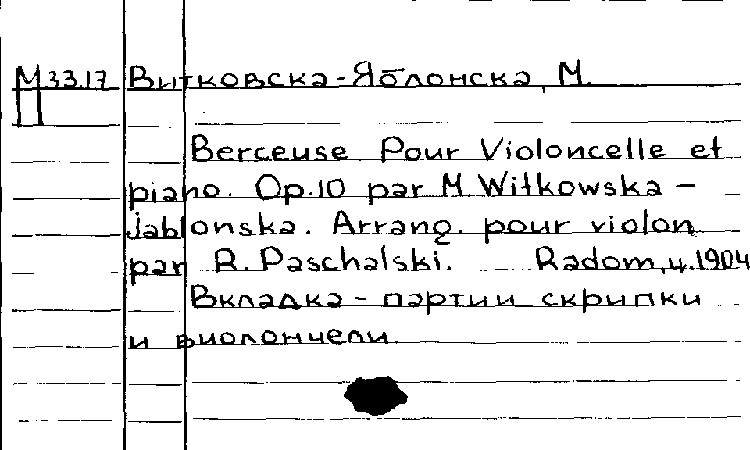 М33.17 Витковска-Яблонска, М.
П
Berceuse Pour Violoncelle et
piano. Op.10 par M Witkowska -
Jablonska. Arrang. pour violon
par R. Paschalski. Radom, ц.1904
Вкладка - партии скрипки
и виолончели.